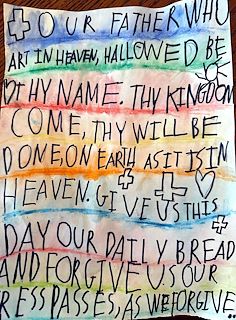 OUR FATHER WHO
ART IN HEAVEN, HALLOWED BE
THY NAME. THY KINGDOM
COME, THY WILL BE
DONE, ON EARTH AS IT IS IN
HEAVEN. GIVE US THIS
DAY OUR DAILY BREAD
AND FORGIVE US OUR
RESSPASSES, AS WE FORGIVE